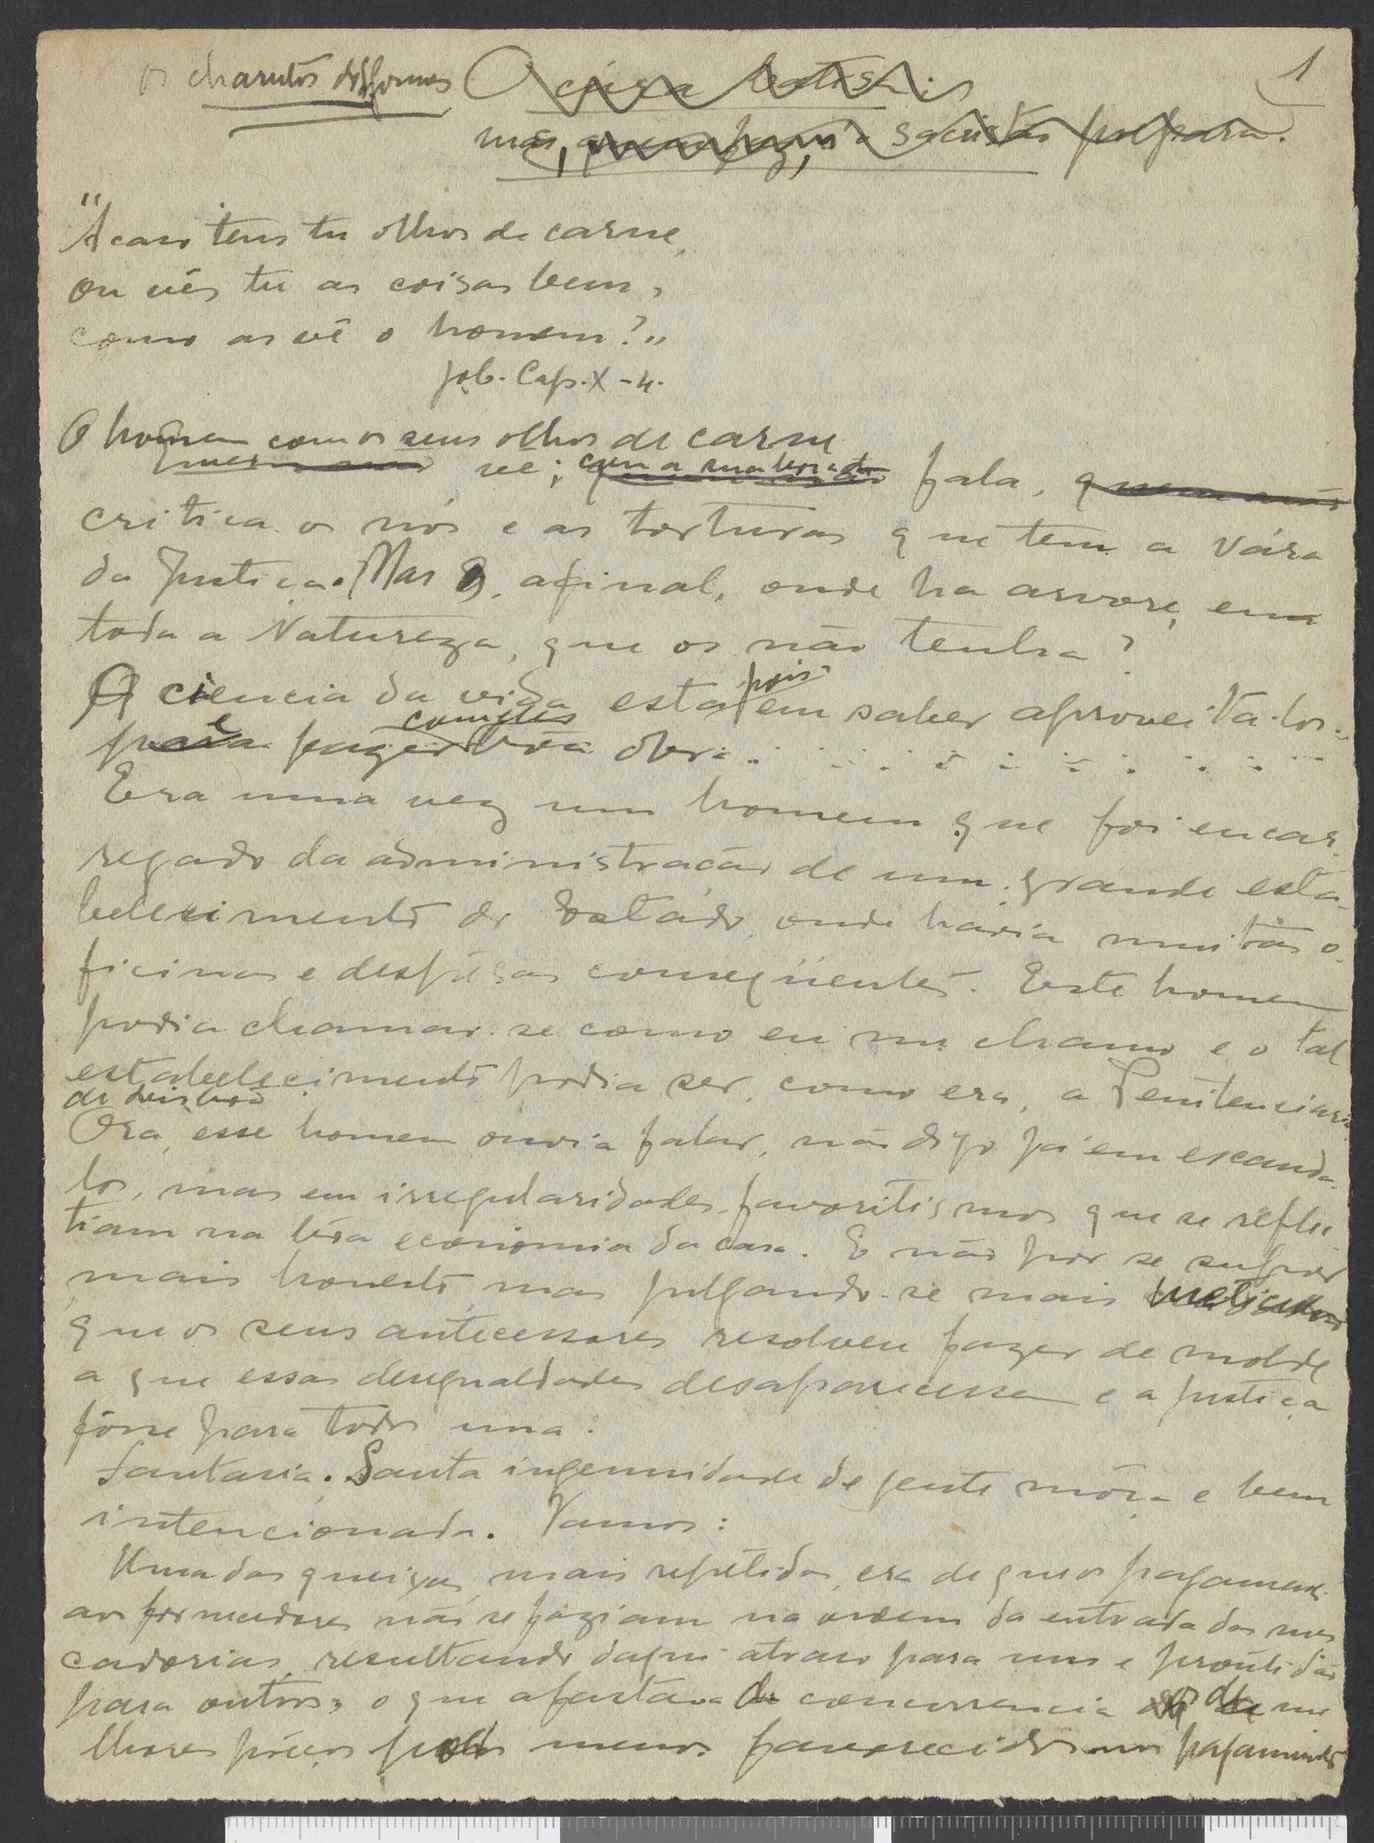 os charutos disformes
1
"Acaso tens tu olhos de carne,
ou vês tu as coisas bem,
como as vê o homem?"
Job. Cap. X - 4.
O homem com os seus olhos de carne
vê; fala,
critica os nós e as torturas que tem a vára
da Justiça. Mas, afinal, onde ha arvore, em
toda a Natureza, que os não tenha?
A ciencia da vida está pois em saber aproveita-los
e com eles fazer bôa obra.
Era uma vez um homem que foi encar-
regado da administração de um grande esta-
belecimento do Estado, onde havia muitas o-
ficinas e despêsas conseqüentes. Este homem
podia chamar-se como eu me chamo e o tal
estabelecimento podia ser, como era, a Penitenciaria
de Lisboa
Ora, esse homem ouvia falar, não digo já em escanda-
los, mas em irregularidades, favoritismos que se reflec-
tiam na bôa economia da casa. E não por se supôr
mais honesto, mas julgando-se mais meticuloso
que os seus antecessores resolveu fazer de molde
a que essas desegualdades desaparecessem e a justiça
fôsse para todos uma.
Fantasia. Santa ingenuidade de gente môça e bem
intencionada. Vamos:
Uma das queixas mais repetidas, era de que os pagamentos
aos fornecedores não se faziam na ordem da entrada das mer-
cadorias, resultando daqui atraso para uns e prontidão
para outros, o que afastava da concurrencia de me-
lhores préços pelos menos favorecidos nos pagamentos